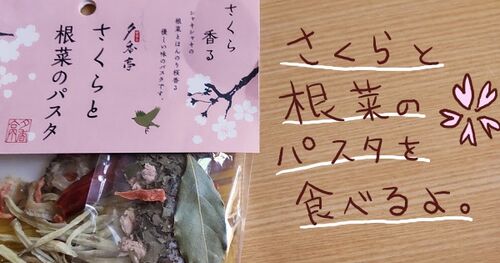 さくら
香る
シャキシャキの
根菜とほんのり桜香る
優しい味のパスタです。
夕香亭
さくらと
根菜のパスタ
さくらと
根菜の
パスタを
食べるよ。